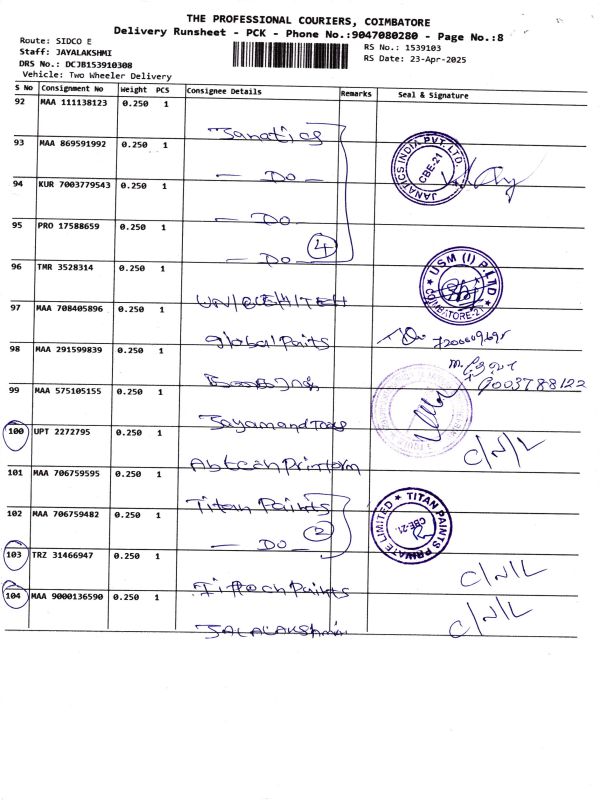 THE PROFESSIONAL COURIERS, COIMBATORE
Delivery Runsheet - PCK - Phone No.:9047080280 - Page No.:8
Route: SIDCO E
RS No.: 1539103
Staff: JAYALAKSHMI
RS Date: 23-Apr-2025
DRS No.: DCJB153910308
Vehicle: Two Wheeler Delivery
S No Consignment No Weight PCS Consignee Details Remarks Seal & Signature
92 MAA 111138123 0.250 1 Janatics
JANATICS INDIA PVT. LTD CBE-21
93 MAA 869591992 0.250 1 — Do —
94 KUR 7003779543 0.250 1 — Do —
95 PRO 17588659 0.250 1 — Do — 4
96 TMR 3528314 0.250 1
USM (I) P. LTD COIMBATORE-21
97 MAA 708405896 0.250 1 Global Paits
98 MAA 291599839 0.250 1
9003788122
99 MAA 575105155 0.250 1
100 UPT 2272795 0.250 1 C/N/L
101 MAA 706759595 0.250 1 Titan Paints
TITAN PAINTS PRIVATE LIMITED CBE-21.
102 MAA 706759482 0.250 1 — Do — 2
103 TRZ 31466947 0.250 1 C/N/L
104 MAA 9000136590 0.250 1 C/N/L